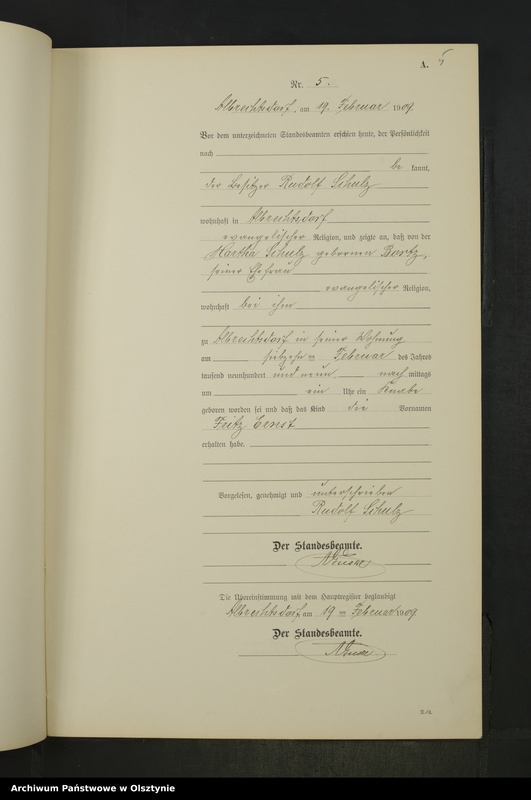 A. 5
Nr. 5.
Albrechtsdorf, am 19. Februar 1909.
Vor dem unterzeichneten Standesbeamten erschien heute, der Persönlichkeit
nach
be kannt,
der Besitzer Rudolf Schulz
wohnhaft in Albrechtsdorf
evangelischer Religion, und zeigte an, daß von der
Martha Schulz geborenen
seiner Ehefrau
evangelischer Religion,
wohnhaft bei ihm
zu Albrechtsdorf in seiner Wohnung
am siebzehn ten Februar des Jahres
tausend neunhundert und neun nach mittags
um ein Uhr ein Knabe
geboren worden sei und daß das Kind die Vornamen
Fritz Ernst
erhalten habe.
Vorgelesen, genehmigt und unterschrieben
Rudolf Schulz
Der Standesbeamte.
Die Übereinstimmung mit dem Hauptregister beglaubigt
Albrechtsdorf am 19 ten Februar 1909
Der Standesbeamte.
Archiwum Państwowe w Olsztynie